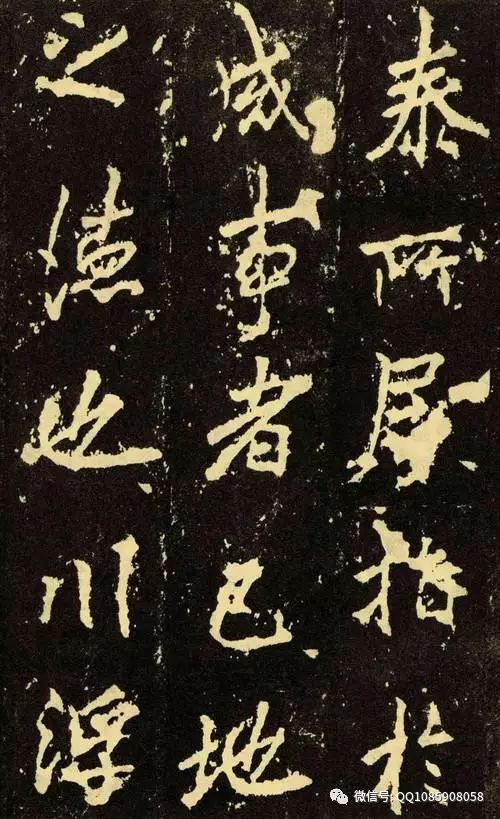 泰所居指於
成事者已地
之德也川浮
微信号: QQ1085908058